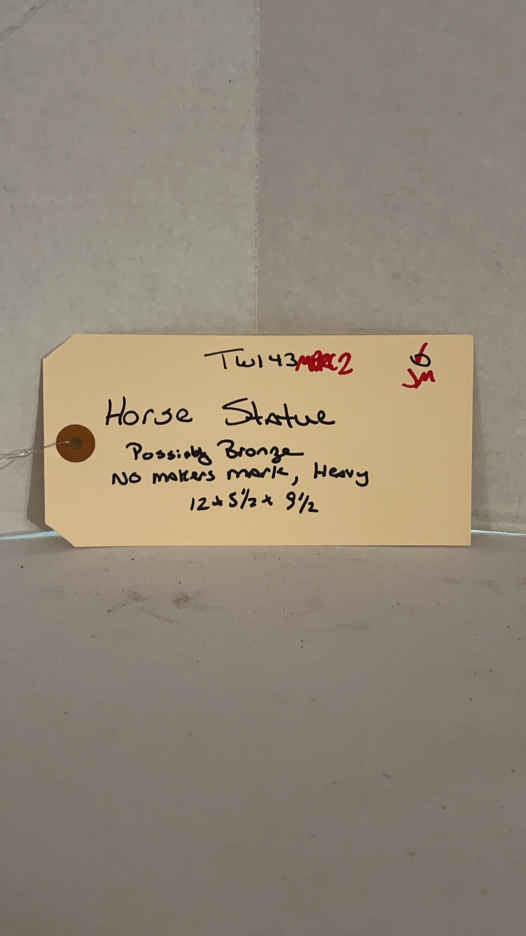 TW143
JM
Horse Statue
Possibly Bronze
No makers mark, Heavy
12 x 5 1/2 x 9 1/2